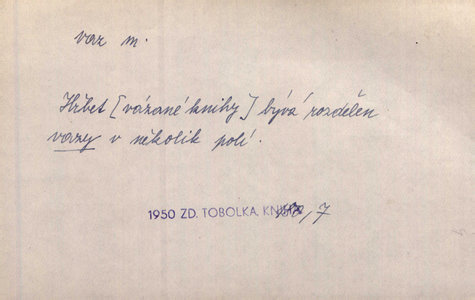 vaz m.
Hřbet [vázané knihy] bývá rozdělen
vazy v několik polí.
1950 ZD. TOBOLKA, KNIHA, 7